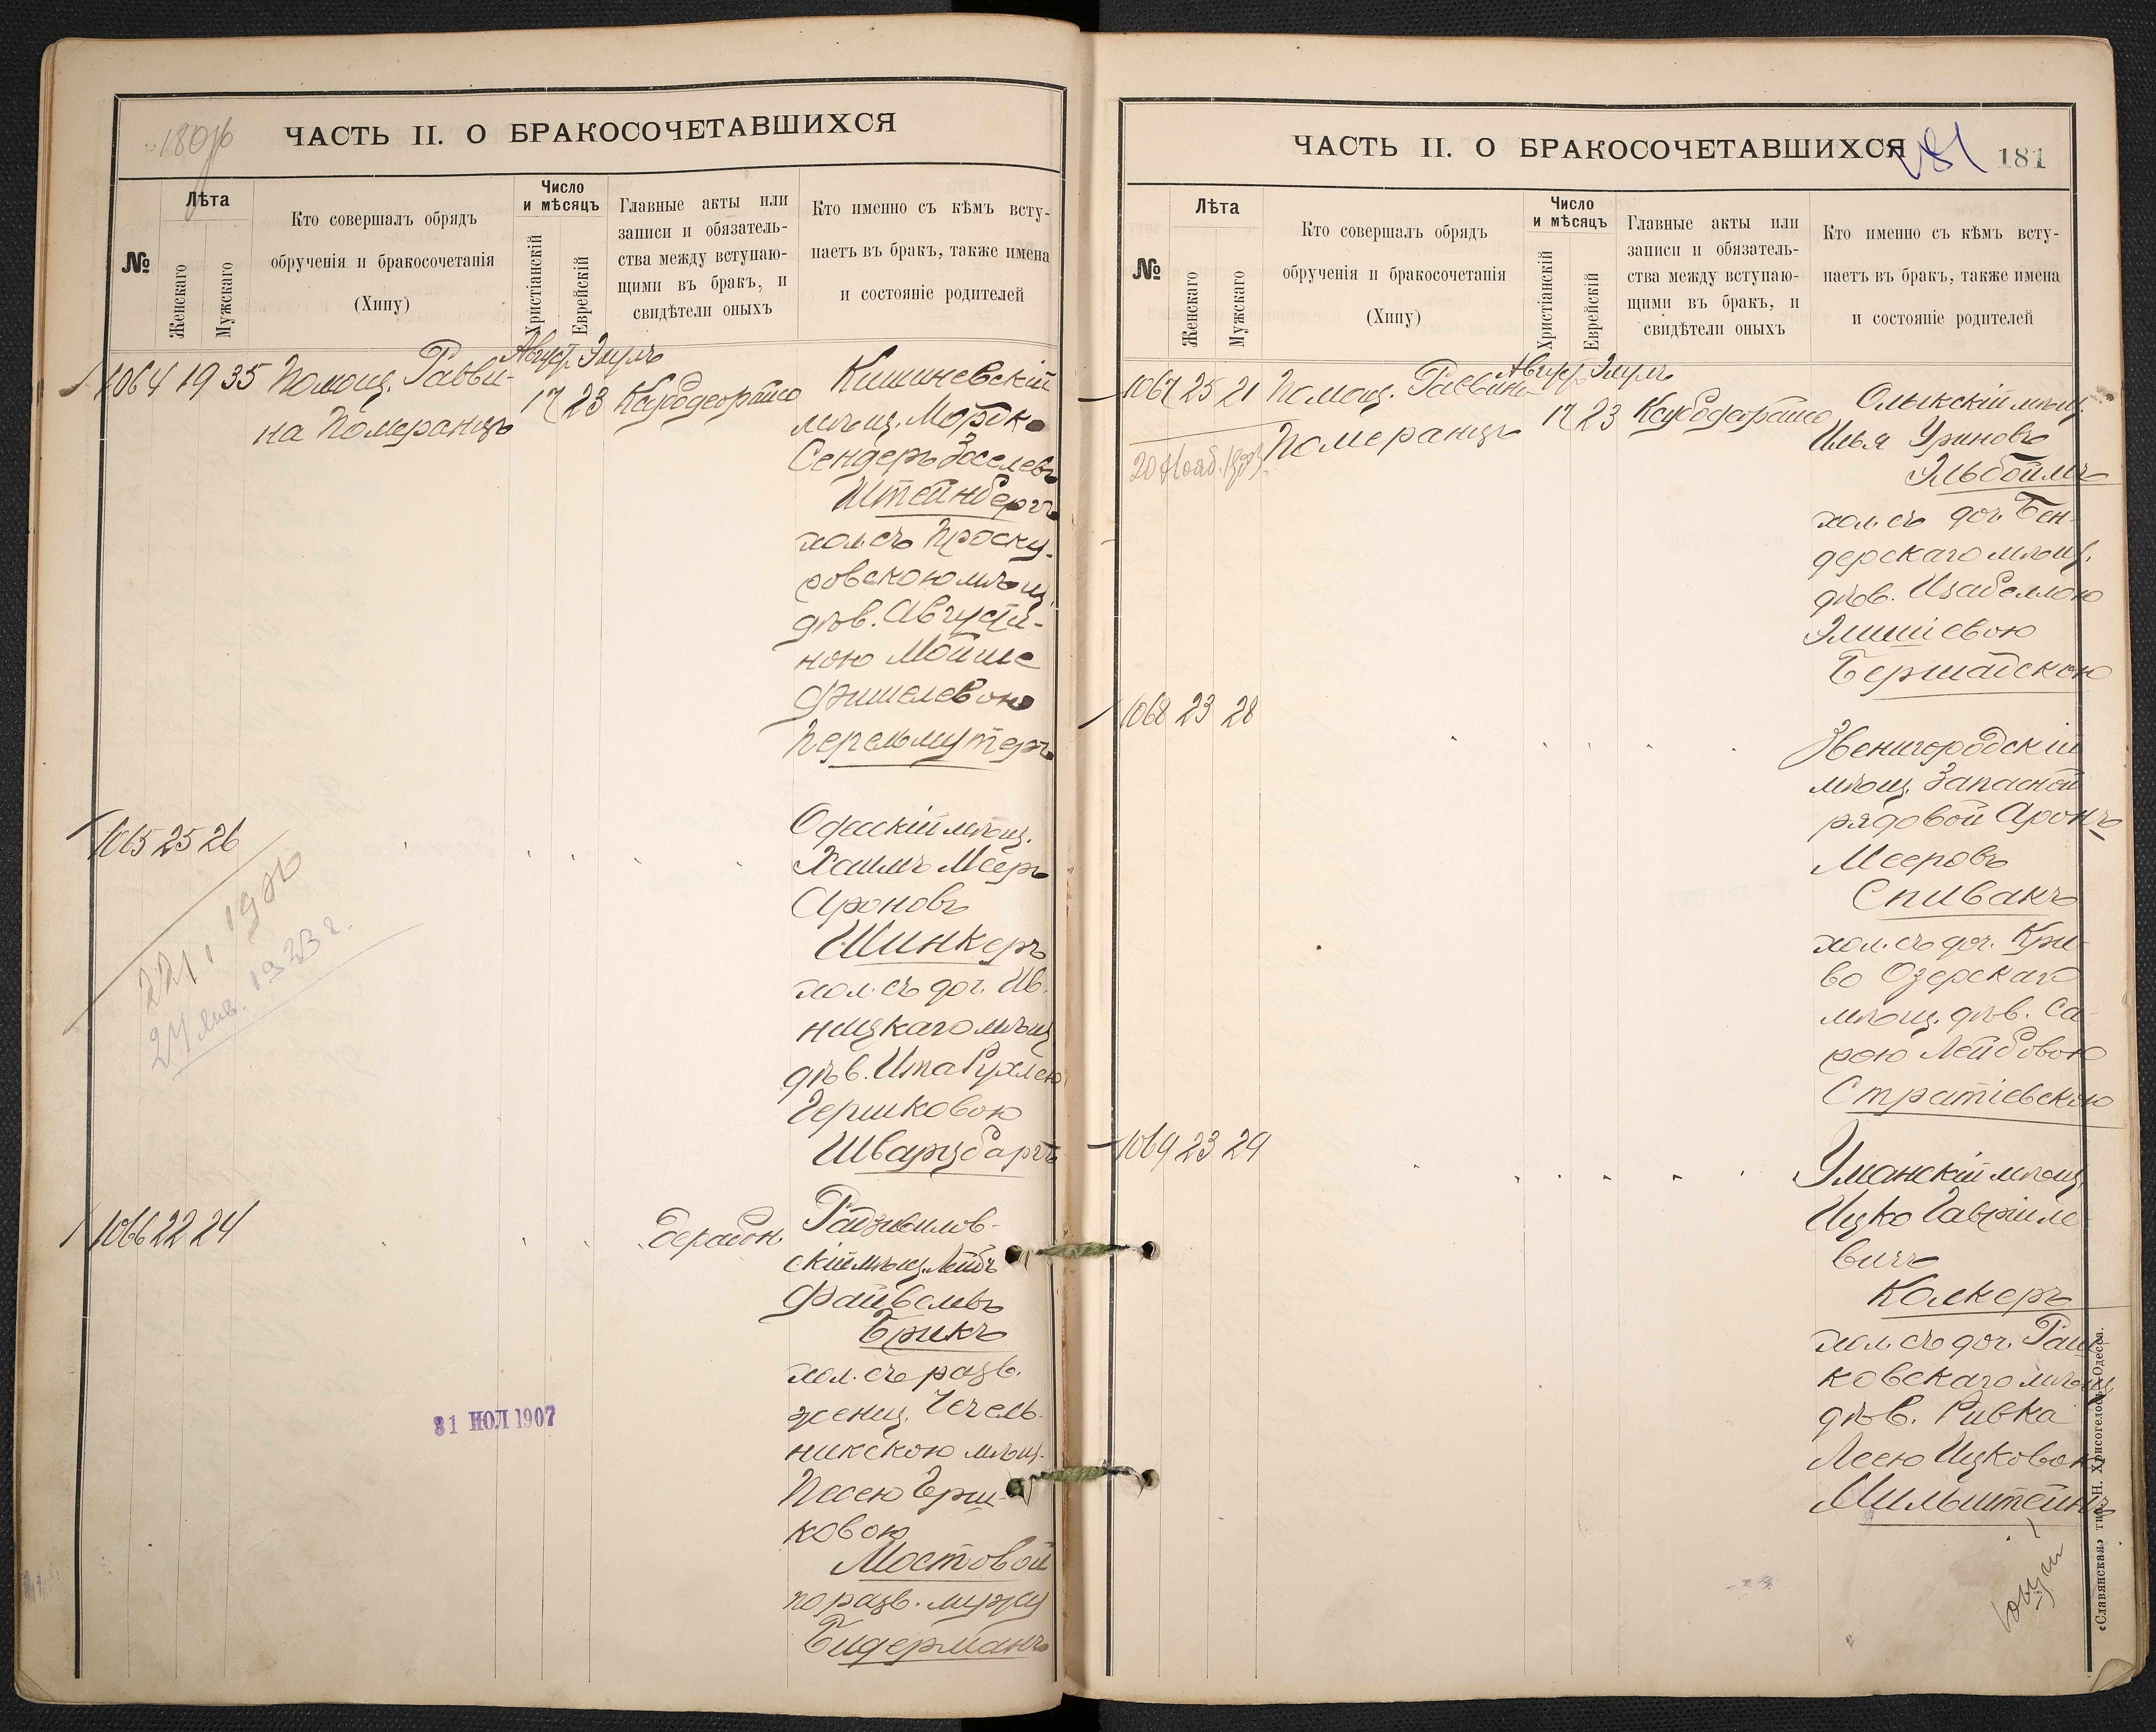 ЧАСТЬ II. О БРАКОСОЧЕТАВШИХСЯ
№
Лѣта
Женскаго
Мужскаго
Кто совершалъ обрядъ
обрученія и бракосочетанія
(Хипу)
Число
и мѣсяцъ
Христіанскій
Еврейскій
Главные акты или
записи и обязатель-
ства между вступаю-
щими въ бракъ, и
свидѣтели оныхъ
Кто именно съ кѣмъ всту-
паетъ въ бракъ, также имена
и состояніе родителей
1064 19 35 Помощ. Равви-
на Померанцъ
Август. Элулъ
17 23
Кишиневскій
мѣщ. Мордко
Сендеръ Іоселевъ
Штейнбергъ
хол. съ Проску-
ровскою мѣщ.
дѣв. Августи-
ною Мойше
Фишелевою
Перельмутеръ
1065 25 26
27 Янв. 1923 г.
Одесскій мѣщ.
Хаимъ Мееръ
Ароновъ
Шинкеръ
хол. съ доч. Ив-
ницкаго мѣщ.
дѣв. Ита Рухлею
Гершковою
Шварцбаргъ
1066 22 24
Радзивилов-
скій мѣщ. Лейбъ
Файвелевъ
Брикъ
хол. съ разв.
женщ. Чечель-
никскою мѣщ.
Песею Герш-
ковою
Мостовой
по разв. мужу
Бидерманъ
31 ИЮЛ 1907
ЧАСТЬ II. О БРАКОСОЧЕТАВШИХСЯ
181
181
№
Лѣта
Женскаго
Мужскаго
Кто совершалъ обрядъ
обрученія и бракосочетанія
(Хипу)
Число
и мѣсяцъ
Христіанскій
Еврейскій
Главные акты или
записи и обязатель-
ства между вступаю-
щими въ бракъ, и
свидѣтели оныхъ
Кто именно съ кѣмъ всту-
паетъ въ бракъ, также имена
и состояніе родителей
1067 25 21 Помощ. Раввина
Померанцъ
Август. Элулъ
17 23
Олыкскій мѣщ.
Илья Уриновъ
Эльбоймъ
хол. съ доч. Бен-
дерскаго мѣщ.
дѣв. Изабеллою
Элишіевою
Бершадскою
1068 23 28
Звенигородскій
мѣщ. Запасной
рядовой Аронъ
Мееровъ
Спивакъ
хол. съ доч. Кри-
во Озерскаго
мѣщ. дѣв. Са-
рою Лейбовою
Стратіевскою
1069 23 29
Уманскій мѣщ.
Ицко Гавриле-
вичъ
Колкеръ
хол. съ доч. Раш-
ковскаго мѣщ.
дѣв. Ривка
Лeeю Ицковою
Мильштейнъ
«Славянская» тип. Н. Хрисогелосъ, Одесса.